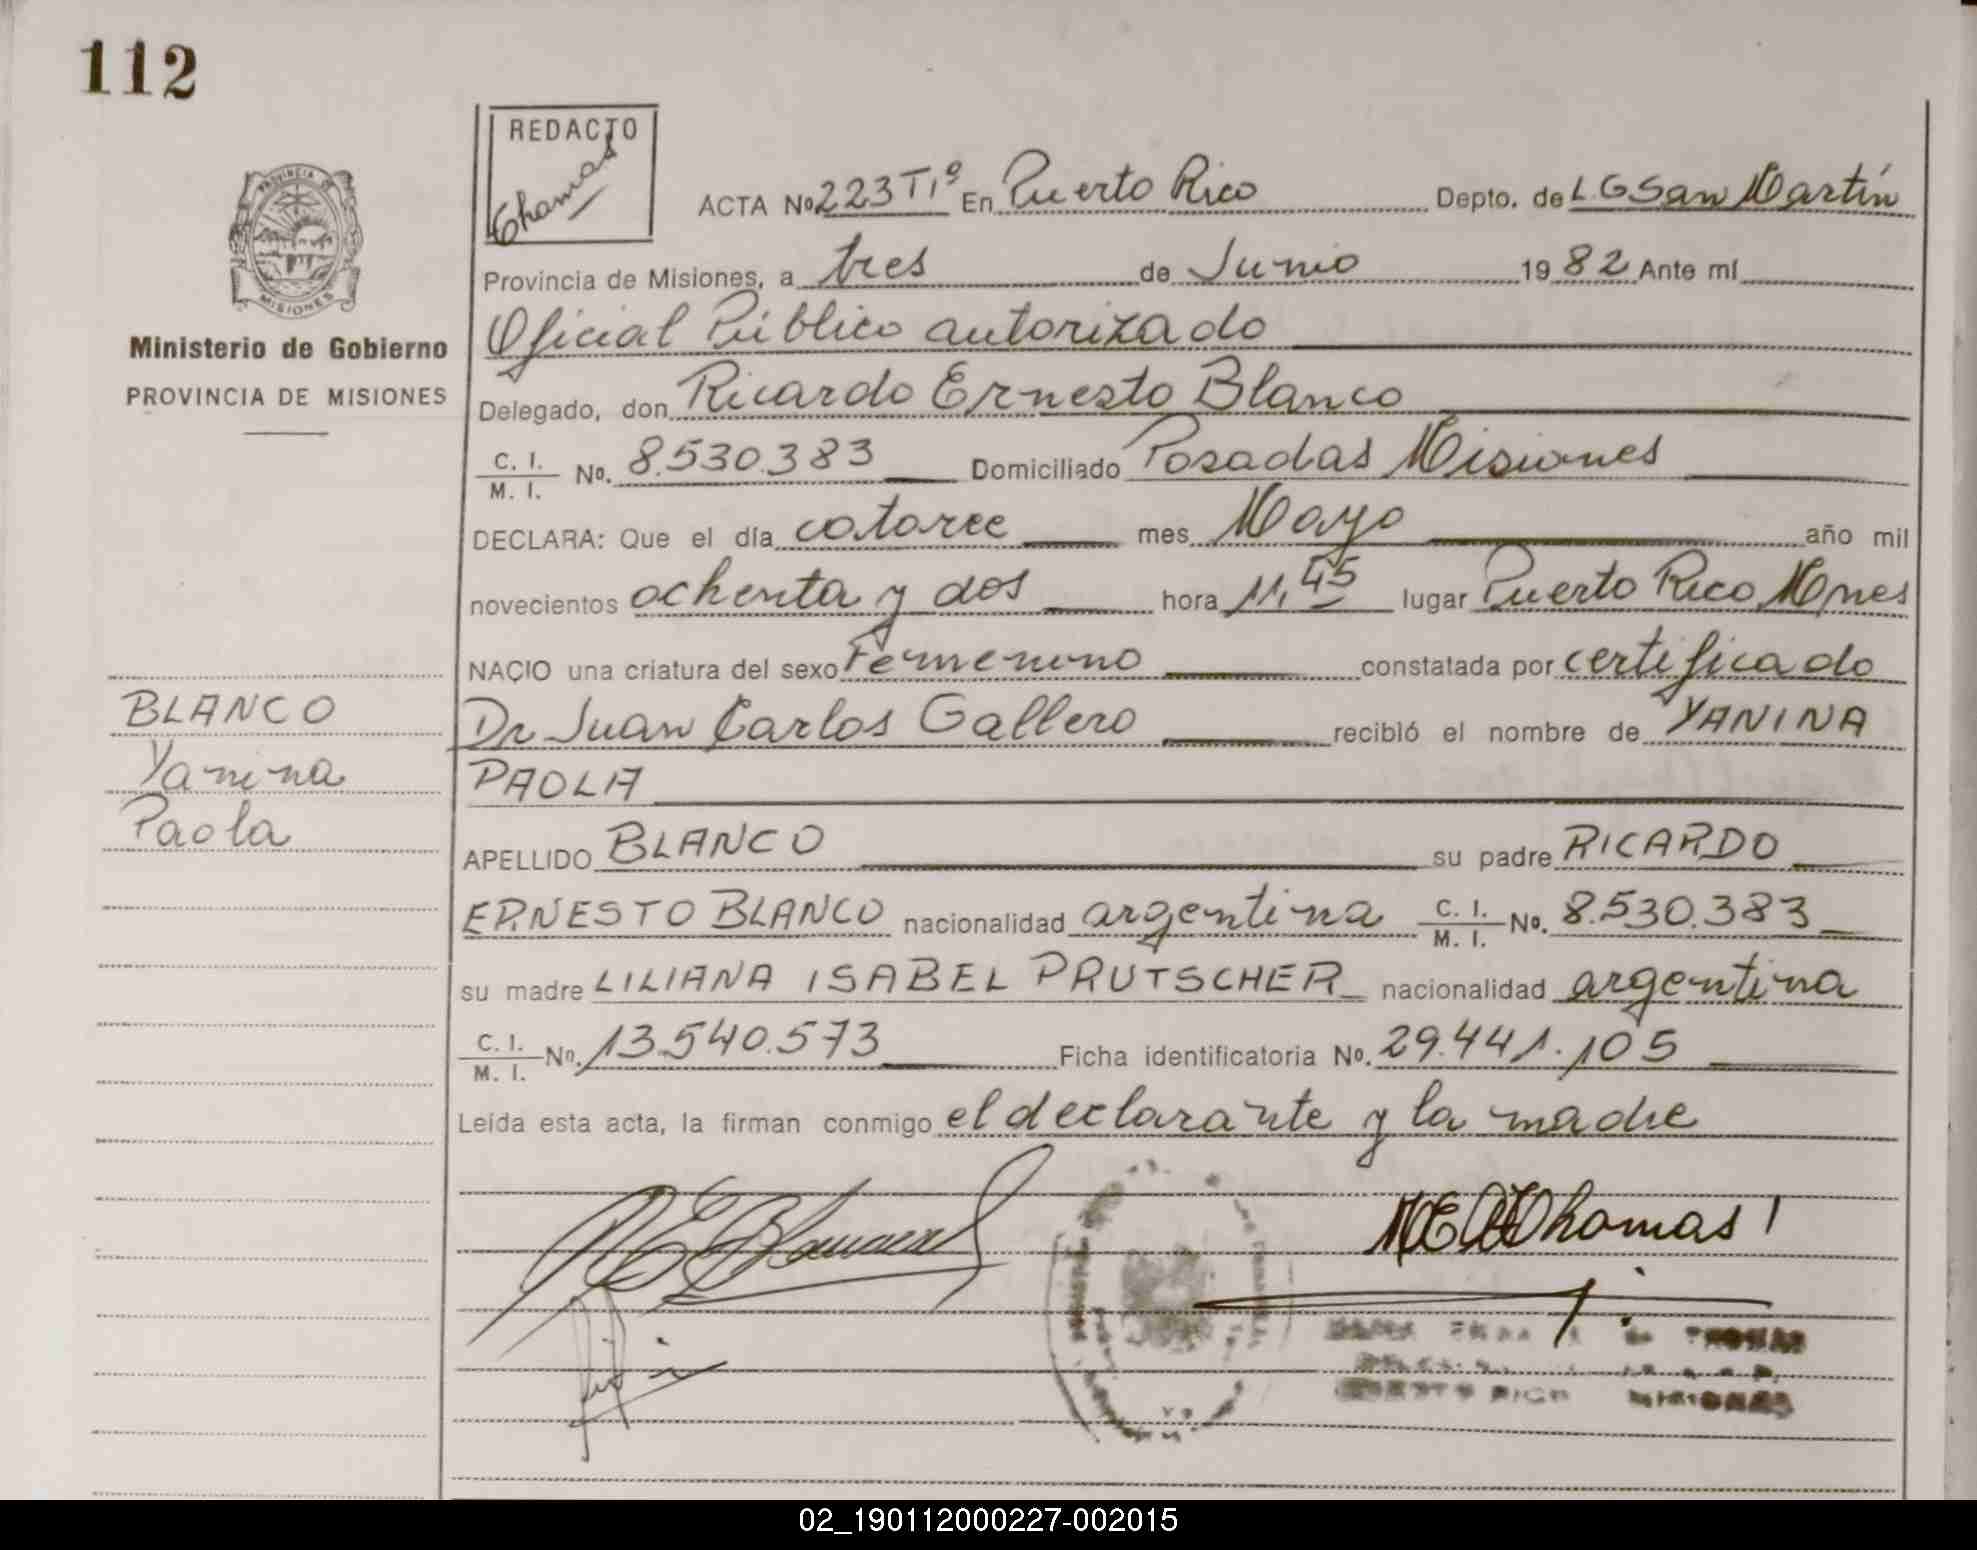 112
REDACTO
Thomas
ACTA No 223 T1º En Puerto Rico Depto. de L. G San Martín
PROVINCIA DE
MISIONES
Provincia de Misiones, a tres de Junio 1982 Ante mí
Ministerio de Gobierno
Oficial Público autorizado
PROVINCIA DE MISIONES
Delegado, don Ricardo Ernesto Blanco
C. I. / M. I. No. 8.530.383 Domiciliado Posadas Misiones
DECLARA: Que el día catorce mes Mayo año mil
novecientos ochenta y dos hora 11,45 lugar Puerto Rico Mnes
NACIO una criatura del sexo Femenino constatada por certificado
BLANCO
Dr Juan Carlos Gallero recibió el nombre de YANINA
Yanina
PAOLA
Paola
APELLIDO BLANCO su padre RICARDO
ERNESTO BLANCO nacionalidad argentina C. I. / M. I. No. 8.530.383
su madre LILIANA ISABEL PRUTSCHER nacionalidad argentina
C. I. / M. I. No. 13.540.573 Ficha identificatoria No. 29.441.105
Leída esta acta, la firman conmigo el declarante y la madre
Thomas
THOMAS
PUERTO RICO MISIONES
02_190112000227-002015